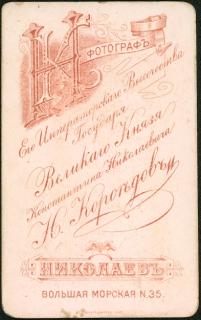 НК
ФОТОГРАФЪ
Его Императорскаго Высочества
Государя
Великаго Князя
Константина Николаевича
Н. Короѣдовъ
НИКОЛАЕВЪ
БОЛЬШАЯ МОРСКАЯ N.35.